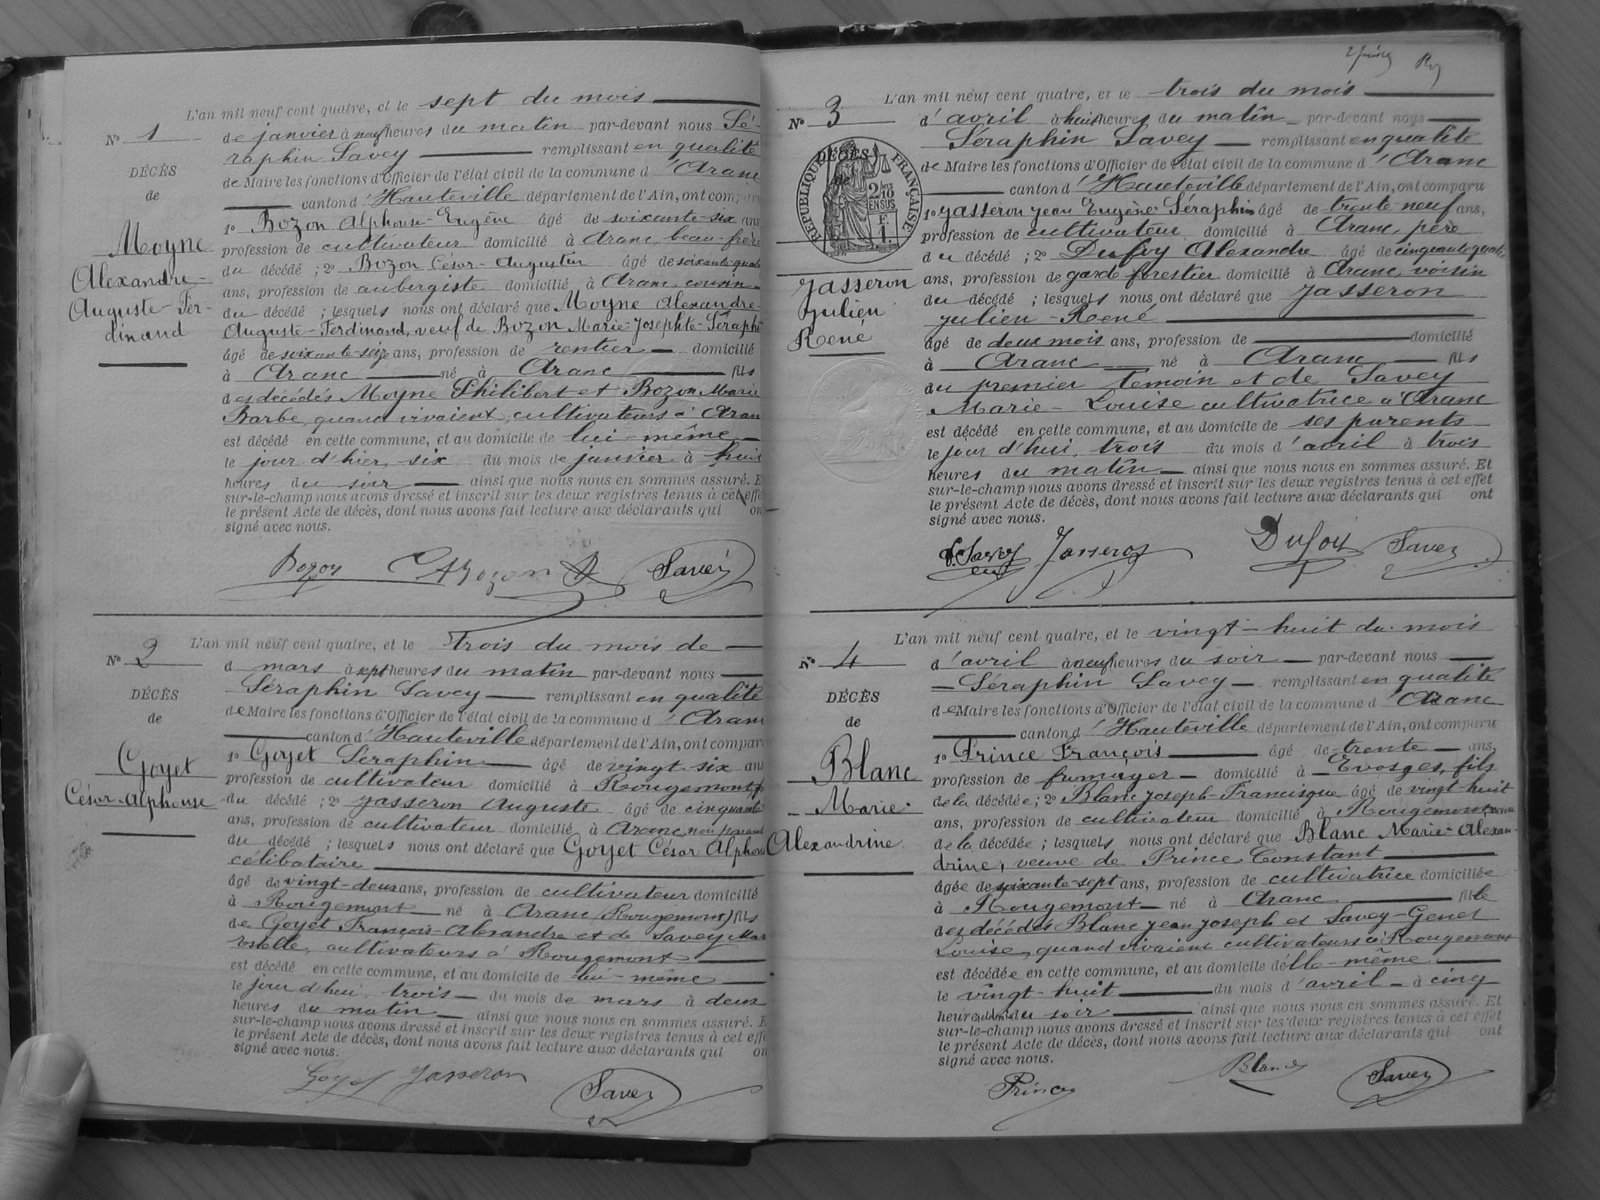 L'an mil neuf cent quatre, et le sept du mois
N° 1 de janvier à neuf heures du matin par-devant nous Sé-
raphin Savey remplissant en qualité
DÉCÈS
de Maire les fonctions d'Officier de l'état civil de la commune d'Aranc
de
canton d'Hauteville département de l'Ain, ont comparu
1° Bozon Alphonse-Eugène âgé de soixante-six ans
Moyne
Alexandre-
Auguste-Fer-
dinand
profession de cultivateur domicilié à Aranc, beau-frère
du décédé ; 2° Bozon César-Augustin âgé de soixante-quatre
ans, profession de aubergiste domicilié à Aranc, cousin
du décédé ; lesquels nous ont déclaré que Moyne Alexandre-
Auguste-Ferdinand, veuf de Bozon Marie-Josephte-Séraph
âgé de ans, profession de rentier domicilié
à Aranc né à Aranc fils
des décédés Moyne Philibert et Bozon Marie
Barbe, quand vivaient, cultivateurs à Aranc
est décédé en cette commune, et au domicile de lui-même
le jour d'hier, six du mois de janvier à huit
heures du soir ainsi que nous nous en sommes assuré. E
sur-le-champ nous avons dressé et inscrit sur les deux registres tenus à cet effe
le présent Acte de décès, dont nous avons fait lecture aux déclarants qui on
signé avec nous.
Bozon Bozon Savey
L'an mil neuf cent quatre, et le trois du mois de
N° 2 d mars à sept heures du matin par-devant nous
Séraphin Savey remplissant en qualité
DÉCÈS
de Maire les fonctions d'Officier de l'état civil de la commune d'Aranc
de
canton d'Hauteville département de l'Ain, ont compar
1° Goyet Séraphin âgé de vingt-six ans
Goyet
César-Alphonse
profession de cultivateur domicilié à Rougemont,
du décédé ; 2° Jasseron Auguste âgé de cinquante
ans, profession de cultivateur domicilié à Aranc, non parent
du décédé ; lesquels nous ont déclaré que Goyet César Alphonse
célibataire
âgé de vingt-deux ans, profession de cultivateur domicilié
à Rougemont né à Aranc (Rougemont) fils
de Goyet François-Alexandre et de Savey Mar
cultivateurs à Rougemont
est décédé en cette commune, et au domicile de lui-même
le jour d'hui, trois du mois de mars à deux
heures du matin ainsi que nous nous en sommes assuré. E
sur-le-champ nous avons dressé et inscrit sur les deux registres tenus à cet effe
le présent Acte de décès, dont nous avons fait lecture aux déclarants qui on
signé avec nous.
Goyet Jasseron Savey
L'an mil neuf cent quatre, et le trois du mois
N° 3 d'avril à huit heures du matin par-devant nous
Séraphin Savey remplissant en qualité
DÉCÈS
de
RÉPUBLIQUE FRANÇAISE
2/10 EN SUS
F. 1.
de Maire les fonctions d'Officier de l'état civil de la commune d'Aranc
canton d'Hauteville département de l'Ain, ont comparu
1° Jasseron Jean Eugène Séraphin âgé de trente neuf ans,
profession de cultivateur domicilié à Aranc, père
du décédé ; 2° Dufoy Alexandre âgé de cinquante quatre
Jasseron
Julien
René
ans, profession de garde forestier domicilié à Aranc, voisin
du décédé ; lesquels nous ont déclaré que Jasseron
Julien-René
âgé de deux mois ans, profession de domicilié
à Aranc né à Aranc fils
du premier témoin et de Savey
Marie-Louise cultivatrice à Aranc
est décédé en cette commune, et au domicile de ses parents
le jour d'hui, trois du mois d'avril à trois
heures du matin ainsi que nous nous en sommes assuré. Et
sur-le-champ nous avons dressé et inscrit sur les deux registres tenus à cet effet
le présent Acte de décès, dont nous avons fait lecture aux déclarants qui ont
signé avec nous.
Jasseron Dufoy Savey
L'an mil neuf cent quatre, et le vingt-huit du mois
N° 4 d'avril à neuf heures du soir par-devant nous
Séraphin Savey remplissant en qualité
DÉCÈS
de Maire les fonctions d'Officier de l'état civil de la commune d'Aranc
de
canton d'Hauteville département de l'Ain, ont comparu
1° Prince François âgé de trente ans,
Blanc
Marie-
Alexandrine
profession de fromager domicilié à Evosges, fils
de la décédée ; 2° Blanc Joseph-Francisque âgé de vingt-huit
ans, profession de cultivateur domicilié à Rougemont,
de la décédée ; lesquels nous ont déclaré que Blanc Marie-Alexan-
drine, veuve de Prince Constant
âgée de soixante-sept ans, profession de cultivatrice domiciliée
à Rougemont né à Aranc fille
des décédés Blanc Jean Joseph et Savey-Genet
Louise, quand vivaient cultivateurs à Rougemont
est décédée en cette commune, et au domicile d'elle-même
le vingt-huit du mois d'avril à cinq
heures du soir ainsi que nous nous en sommes assuré. Et
sur-le-champ nous avons dressé et inscrit sur les deux registres tenus à cet effet
le présent Acte de décès, dont nous avons fait lecture aux déclarants qui ont
signé avec nous.
Prince Blanc Savey